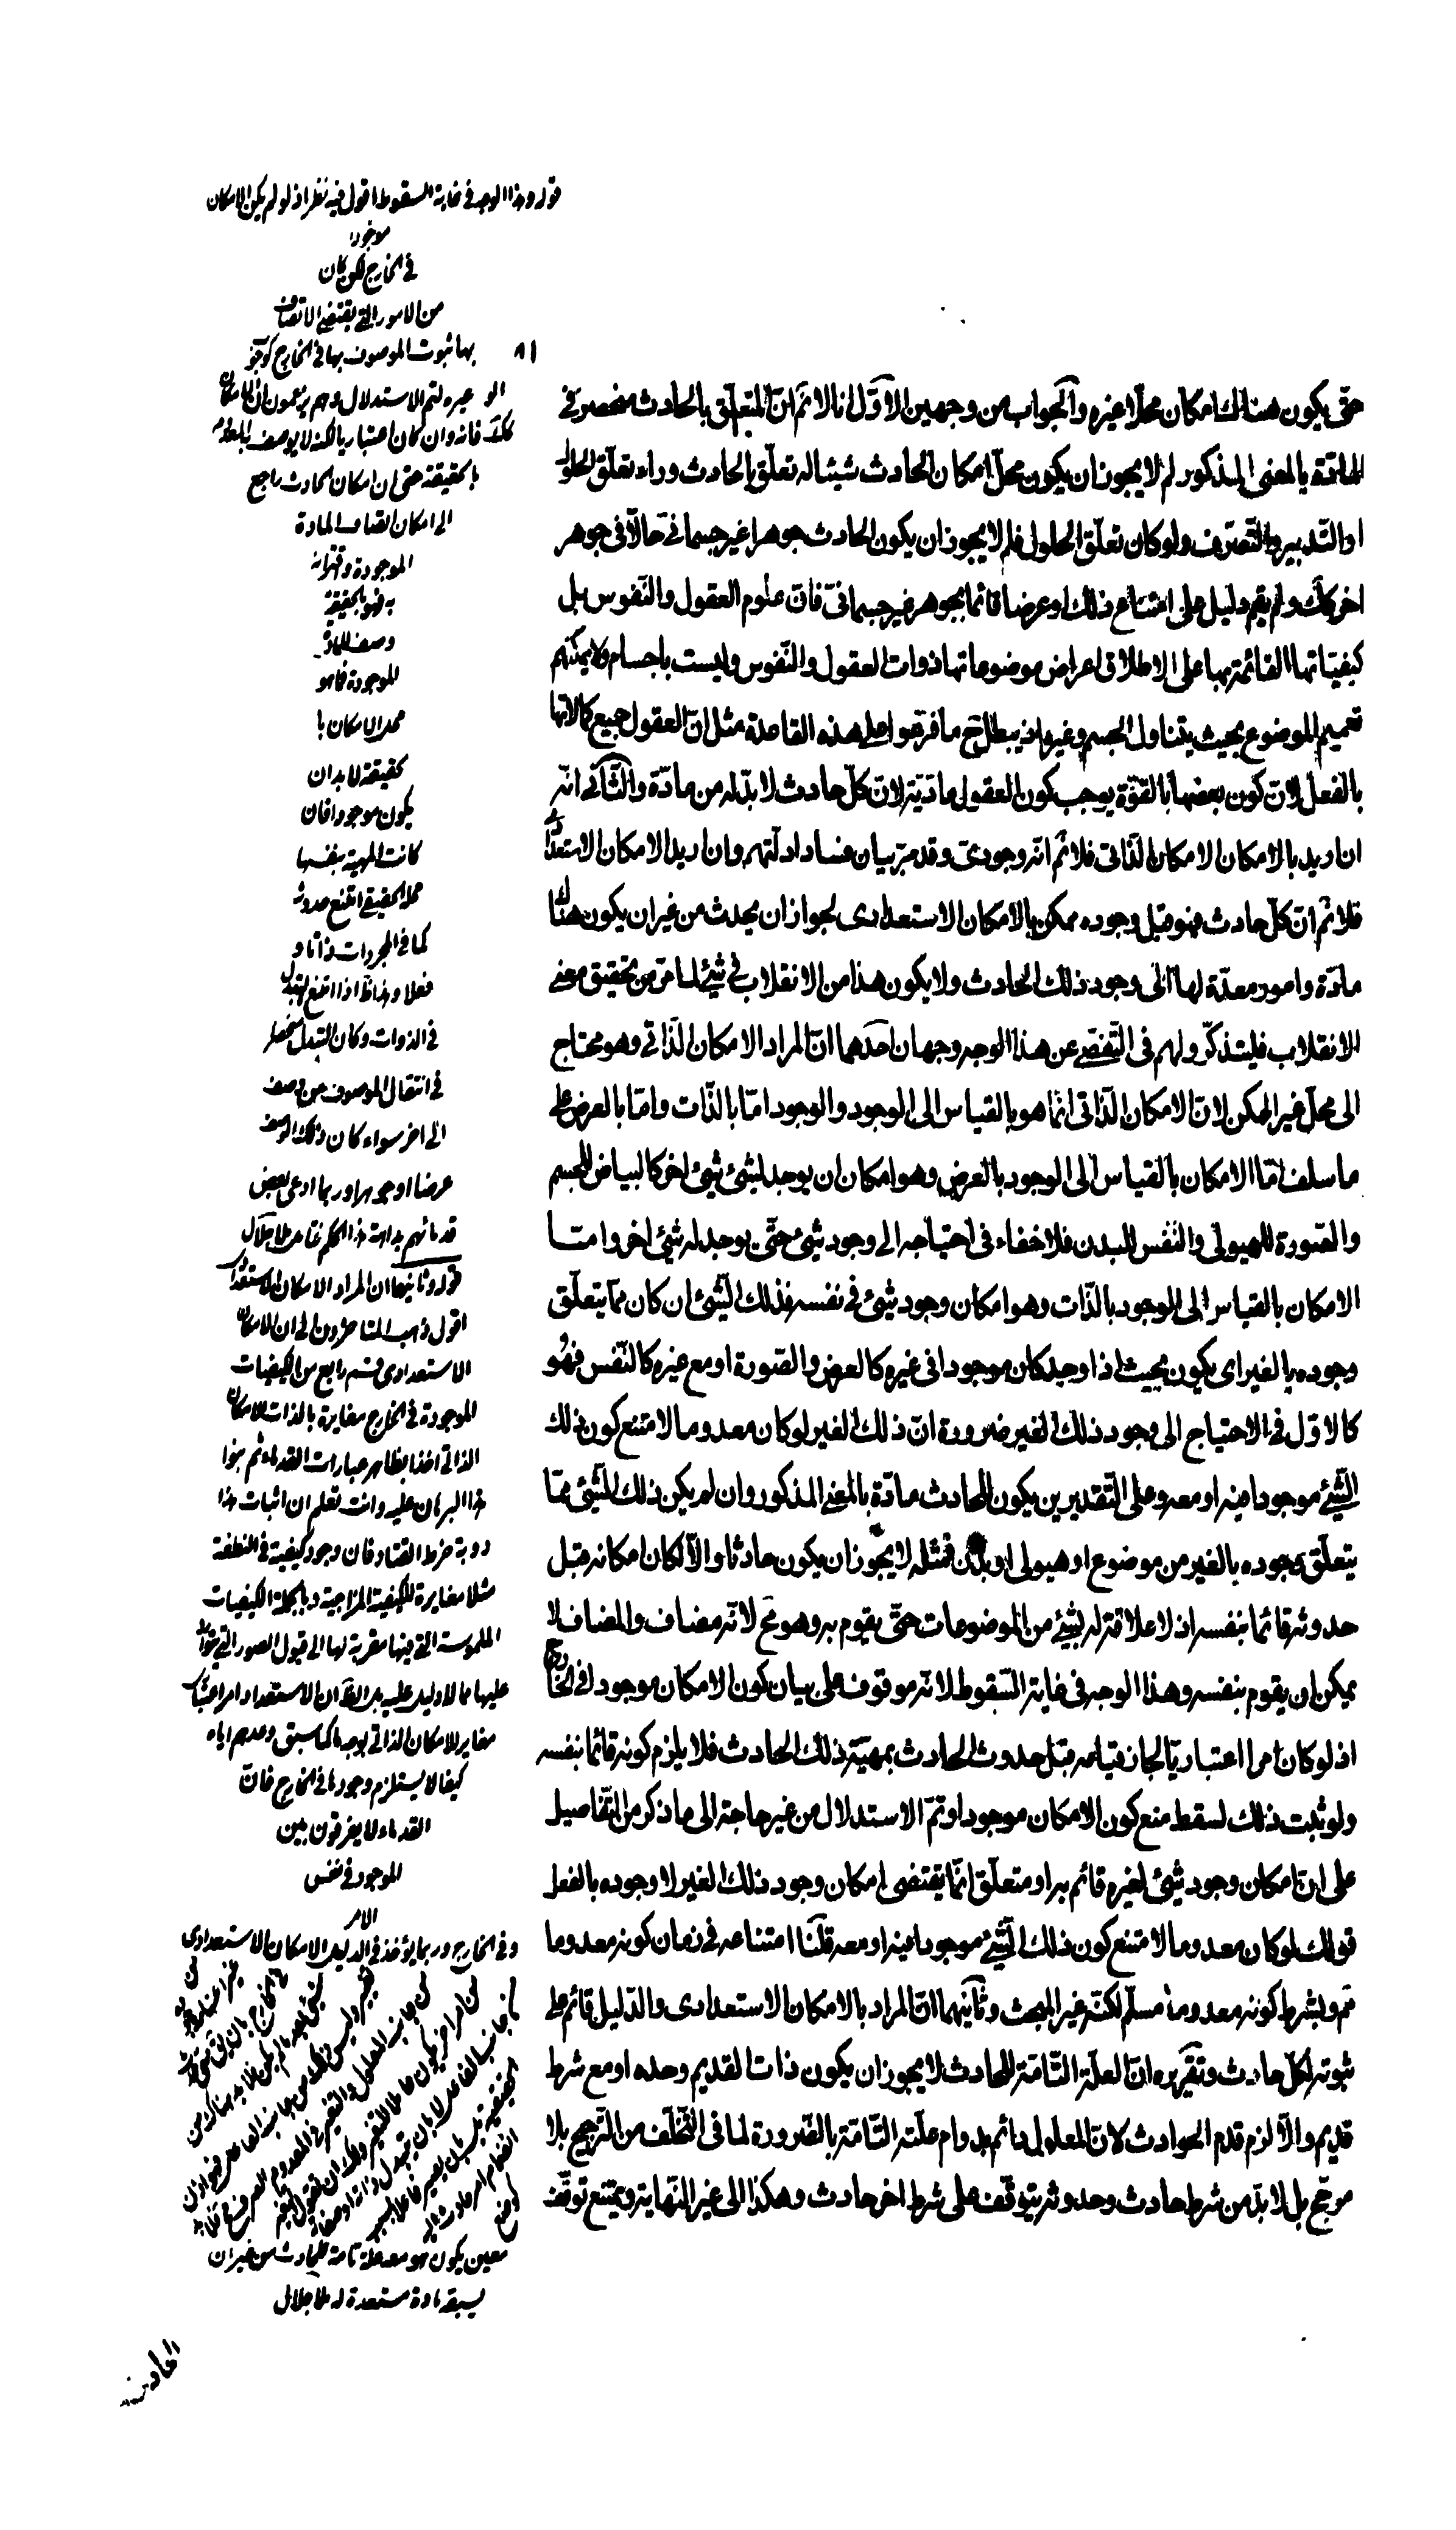 حتى يكون هناك امكان محلا غيره والجواب من وجهين الاول انا لا نم ان المتعلق بالحادث منحصر فى
المادة بالمعنى المذكور لم لا يجوز ان يكون محل امكان الحادث شيئا له تعلق بالحادث وراء تعلق الحلول
او التدبير والتصرف ولو كان تعلق الحلول فلم لا يجوز ان يكون الحادث جوهرا غير جسمانى حالا فى جوهر
اخر كك ولم يقم دليل على امتناع ذلك او عرضا قائما بجوهر غير جسمانى فان علوم العقول والنفوس بل
كيفياتها القائمة بها على الاطلاق اعراض موضوعاتها ذوات العقول والنفوس وليست باجسام ولا يمكنهم
تعميم الموضوع بحيث يتناول الجسم وغيره اذ يبطل ح ما فرعوا على هذه القاعدة مثل ان العقول جميع كمالاتها
بالفعل لان كون بعضها بالقوة يوجب كون العقول مادية لان كل حادث لا بد له من مادة والثانى انه
ان اريد بالامكان الامكان الذاتى فلا نم انه وجودى وقد مر بيان فساد ادلتهم وان اريد الامكان الاستعدادى
فلا نم ان كل حادث فهو قبل وجوده ممكن بالامكان الاستعدادى لجواز ان يحدث من غير ان يكون هناك
مادة وامور معدة لها الى وجود ذلك الحادث ولا يكون هذا من الانقلاب فى شئ لما مر من تحقيق معنى
الانقلاب فليتذكر ولهم فى التفصى عن هذا الوجه وجهان احدهما ان المراد الامكان الذاتى وهو محتاج
الى محل غير الممكن لان الامكان الذاتى انما هو بالقياس الى الوجود والوجود اما بالذات واما بالعرض على
ما سلف اما الامكان بالقياس الى الوجود بالعرض وهو امكان ان يوجد لشئ شئ اخر كالبياض للجسم
والصورة للهيولى والنفس للبدن فلا خفاء فى احتياجه الى وجود شئ حتى يوجد له شئ اخر واما
الامكان بالقياس الى الوجود بالذات وهو امكان وجود شئ فى نفسه فذلك الشئ ان كان مما يتعلق
وجوده بالغير اى يكون بحيث اذا وجد كان موجودا فى غيره كالعرض والصورة او مع غيره كالنفس فهو
كالاول فى الاحتياج الى وجود ذلك الغير ضرورة ان ذلك الغير لو كان معدوما لامتنع كون ذلك
الشئ موجودا فيه او معه وعلى التقديرين يكون للحادث مادة بالمعنى المذكور وان لم يكن ذلك الشئ مما
يتعلق وجوده بالغير من موضوع او هيولى او بدن فمثله لا يجوز ان يكون حادثا والا لكان امكانه قبل
حدوثه قائما بنفسه اذ لا علاقة له بشئ من الموضوعات حتى يقوم به وهو مح لانه مضاف والمضاف لا
يمكن ان يقوم بنفسه وهذا الوجه فى غاية السقوط لانه موقوف على بيان كون الامكان موجودا فى الخارج
اذ لو كان امرا اعتباريا لجاز قيامه قبل حدوث الحادث بمهية ذلك الحادث فلا يلزم كونه قائما بنفسه
ولو ثبت ذلك لسقط منع كون الامكان موجودا وتم الاستدلال من غير حاجة الى ما ذكر من التفاصيل
على ان امكان وجود شئ لغيره قائم به او متعلق انما يقتضى امكان وجود ذلك الغير لا وجوده بالفعل
قولك لو كان معدوما لامتنع كون ذلك الشئ موجودا فيه او معه قلنا امتناعه فى زمان كونه معدوما
مم وبشرط كونه معدوما مسلم لكنه غير المبحث وثانيهما ان المراد بالامكان الاستعدادى والدليل قائم على
ثبوته لكل حادث وتقريره ان العلة التامة للحادث لا يجوز ان يكون ذات القديم وحده او مع شرط
قديم والا لزم قدم الحوادث لان المعلول دائم بدوام علته التامة بالضرورة لما فى التخلف من الترجيح بلا
مرجح بل لا بد من شرط حادث وحدوثه يتوقف على شرط اخر حادث وهكذا الى غير النهاية ويمتنع توقف
الحادث
٨١
قوله وهذا الوجه فى غاية السقوط اقول فيه نظر اذ لو لم يكن الامكان
موجودا
فى الخارج لكن كان
من الامور التى يقتضى الاتصاف
بها ثبوت الموصوف بها فى الخارج
لتم الاستدلال وهم يزعمون ان الامكان
كك فانه وان كان اعتباريا لكنه لا يوصف به المعدوم
بالحقيقة حتى ان امكان الحادث راجع
الى امكان اتصاف المادة
الموجودة
به فهو بالحقيقة
وصف للمادة
الموجودة فما هو
محل الامكان با
لحقيقة لا بد ان
يكون موجودا فان
كانت المهية بنفسها
محله الحقيقى امتنع حدوثه
كما فى المجردات ذاتا و
فعلا
فى الذوات وكان التبدل منحصرا
فى انتقال الموصوف من وصف
الى اخر سواء كان ذلك الوصف
عرضا او جوهرا وربما ادعى بعض
قدمائهم بداهة هذا الحكم ملا جلال
قوله وثانيهما ان المراد الامكان الاستعدادى
اقول ذهب المتاخرون الى ان الامكان
الاستعدادى قسم رابع من الكيفيات
الموجودة فى الخارج مغايرة بالذات للامكان
الذاتى اخذا بظاهر عبارات القدماء ثم بنوا
هذا البرهان عليه وانت تعلم ان اثبات هذا
دونه خرط القتاد فان وجود كيفية فى النطفة
مثلا مغايرة للكيفية المزاجية وبالجملة الكيفيات
الملموسة التى فيها مقربة لها الى قبول الصور التى يتوارد
عليها مما لا دليل عليه بل الحق ان الاستعداد امر اعتبارى
مغاير للامكان الذاتى بوجه ما كما سبق وعدهم اياه
كيفا لا يستلزم وجودها فى الخارج فان
القدماء لا يفرقون بين
الموجود فى نفس
الامر
وفى الخارج وربما يؤخذ فى الدليل الامكان الاستعدادى
معين يكون هو معه علة تامة للحادث من غير ان
يسبقه مادة مستعدة له ملا جلال